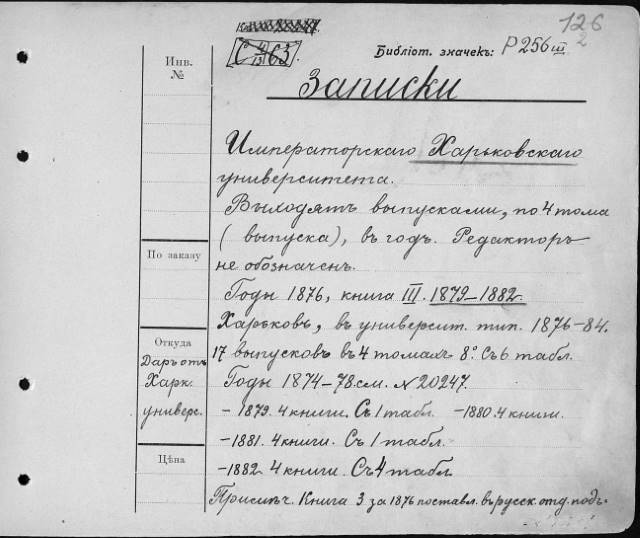 126
2
Библіот. значекъ: P 256 III
63
Инв.
№
Записки
Императорскаго Харьковскаго
университета.
Выходятъ выпусками, по 4 тома
(выпуска), въ годъ. Редакторъ
не обозначенъ.
По заказу
Годы 1876, книга III. 1879–1882.
Харьковъ, въ университ. тип. 1876–84.
Откуда
Даръ отъ
Харк.
универс.
17 выпусковъ въ 4 томахъ 8°. Съ 6 табл.
Годы 1874–78 см. N 20247.
– 1879. 4 книги. Съ 1 табл. – 1880. 4 книги.
– 1881. 4 книги. Съ 1 табл.
Цѣна
– 1882. 4 книги. Съ 4 табл.
Книга 3 за 1876 поставл. въ русск. отд. подъ